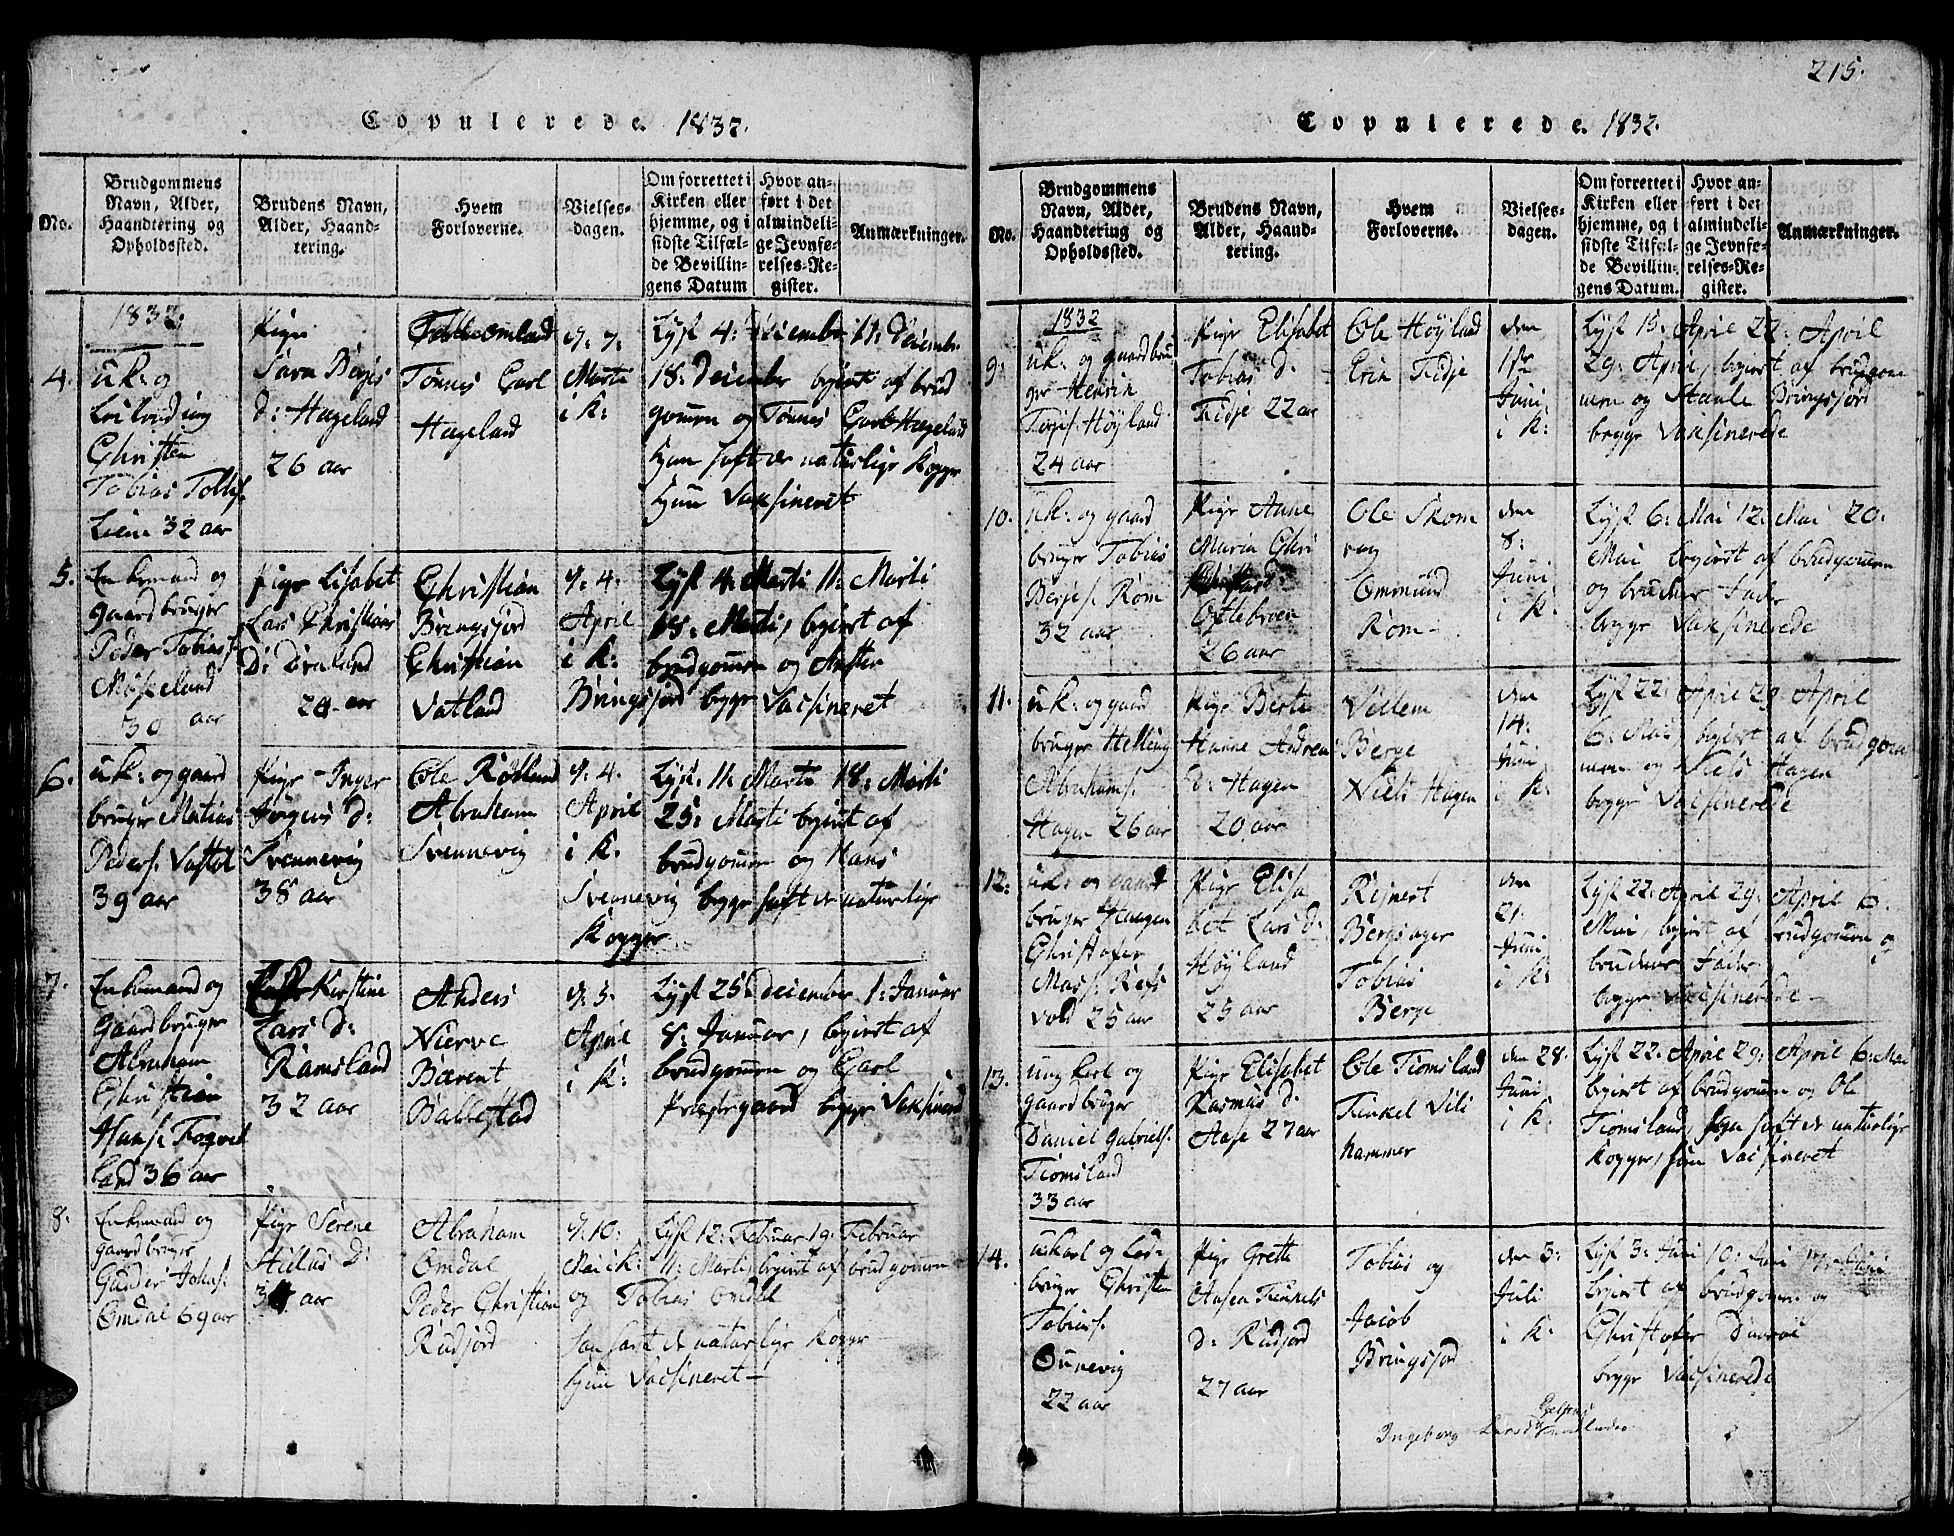 215.
Copulerede. 1832.
No.
Brudgommens
Navn, Alder,
Haandtering og
Opholdssted.
Brudens Navn,
Alder, Haand-
tering.
Hvem
Forloverne.
Vielses-
dagen.
Om forrettet i
Kirken eller
hjemme, og i
sidste Tilfæl-
de Bevillin-
gens Datum
Hvor an-
ført i det
almindeli-
ge Jevnfø-
relses-Re-
gister.
Anmærkninger.
1832.
4.
u k: og
Christen
Tobias
Lien 32 aar
Pige
Sara Børges
d: Hægeland
26 aar
Tønnes Carl
Hægeland
d. 7.
Marti
i k:
Lyst 4: Decembr 11: Decembr
18: December begiert af brud
gommen og Tønnes Carl Hægeland
han haft de naturlige Kopper
hun Vaksineret
5.
Enkemand og
gaardbruger
Peder Tobias s.
Møskeland
30 aar
Pige Lisabet
Lars Christians
D:
aar
Christian
Bringsjord
Christian
Vatland
d. 4.
April
i k:
Lyst 4: Marti 11: Marti
18: Marti, begiert af
brudgommen og
Bringsjord begge Vacsineret
6.
u k: og gaard
bruger Matias
Peders.
39 aar
Pige Inger
Jørgens D:
Svennevig
38 aar
Ole
Abraham
Svennevig
d. 4.
April
i k.
Lyst. 11. Marti 18: Marti
25: Marti begiert af
brudgommen og Hans
Svennevig begge haft de naturlige
Kopper
7.
Enkemand og
Gaardbruger
Abraham
Christian
Hans.
land 36 aar
Kirstine
Lars D:
Ramsland
32 aar
Anders
Nierve
Bærent
Ballestad
d. 5.
April
i k:
Lyst 25: December 1: Januar
8: Januar, begiert af
brudgommen og Carl
Præstegaard begge Vaksineret
8.
Enkemand og
gaardbruger
Gunder Johns.
Omdal 69 aar
Pige Serene
D:
aar
Abraham
Omdal
Peder Christian
Rudjord
d. 10.
Mai i k:
Lyst 12: Februar 19: Februar
11: Marti, begiert af brudgommen
og Tobias Omdal
han haft de naturlige Kopper
hun Vacsineret
Copulerede. 1832.
No.
Brudgommens
Navn, Alder,
Haandtering og
Opholdssted.
Brudens Navn,
Alder, Haand-
tering.
Hvem
Forloverne.
Vielses-
dagen.
Om forrettet i
Kirken eller
hjemme, og i
sidste Tilfæl-
de Bevillin-
gens Datum.
Hvor an-
ført i det
almindeli-
ge Jevnfø-
relses-Re-
gister.
Anmærkninger.
1832
9.
u k: og gaardbru
ger Henrik
Terjes. Høyland
24 aar
Pige Elisabet
Tobias D.
Tidje 22 aar
Ole Høyland
Erik Tidje
den
1ste
Juni
i k:
Lyst 15: April 22: April
29: April, begiert af brudgom
men og Staale Bringsjord
begge Vaksinerede
10.
u k: og gaard
bruger Tobias
Berjes. Rom
32 aar
Pige Anne
Maria Chri
Oftebroen
26 aar
Ole Skom
rag
Ommund
Rom
den
8:
Juni
i k:
Lyst 6: Mai 12: Mai 20.
Mai begiert af brudgommen
og brudens Fader
begge Vaksinerede
11.
u k: og gaard
bruger Helling
Abrahams.
Hagen 26 aar
Pige Berte
Hanne Andreas
d: Hagen
20 aar
Villem
Berge
Niels Hagen
den
14:
Juni
i k:
Lyst 22: April 29 April
6: Mai, begiert af brudgom
men og Niels Hagen
begge Vacsinerede
12.
u k: og gaard
bruger Haagen
Christofer
Mass.
vold 25 aar
Pige Elisa
bet Lars d.
Høyland
25 aar
Reinert
Bergsager
Tobias
Berge
den
21.
Juni
i k:
Lyst 22: April 29: April 6.
Mai, begiert af brudgommen og
brudens Fader
begge Vacsinerede
13.
ung karl og
gaardbruger
Daniel Gabriels.
Tiomsland
33 aar
Pige Elisabet
Rasmus D.
Aase 27 aar
Ole Tiomsland
Tenkel Vili
hammer
den 28.
Juni
i k:
Lyst 22: April 29: April 6: Mai
begiert af brudgommen og Ole
Tiomsland, han haft de naturlige
Kopper, hun Vacsineret
14.
u karl og Led:
bruger Christen
Tobias s.
Ounevig
22 aar
Pige Grette
Aasea Tenkels
d: Rudjord
27 aar
Tobias og
Jacob
Bringsjord
den 3:
Juli
i k:
Lyst 3: Juni 10: Juni 17: Juni
begiert af brudgommen og
Christofer
begge Vacsinerede
Ingeborg